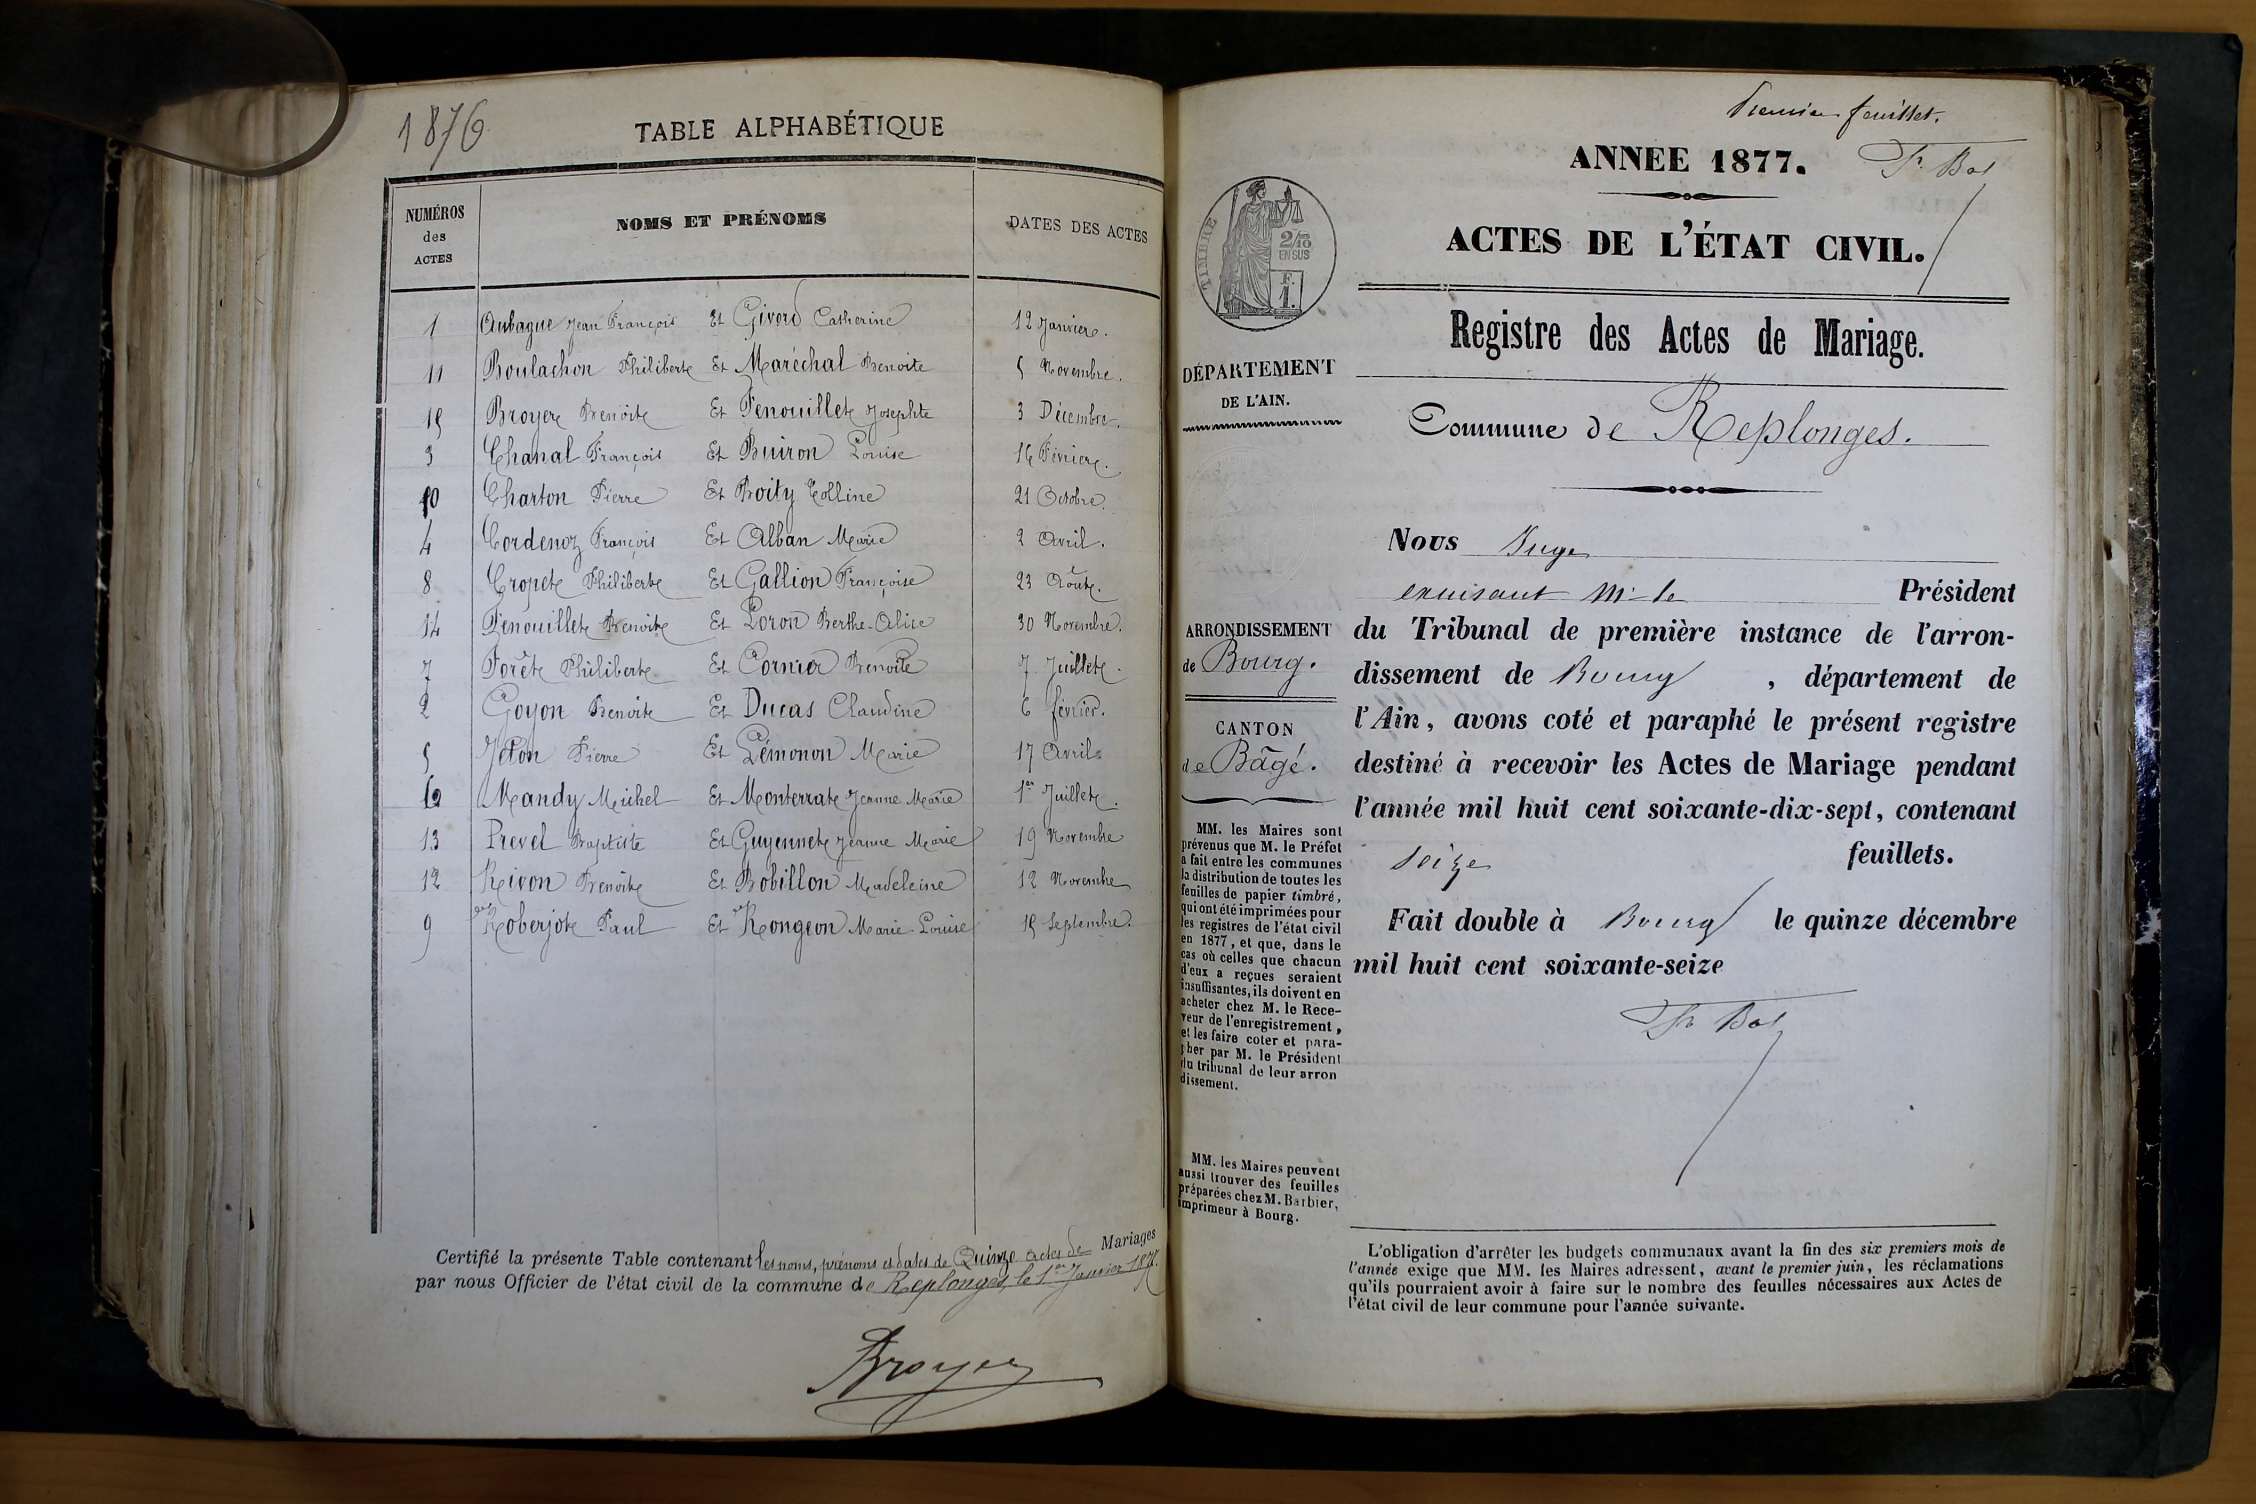 1876
TABLE ALPHABÉTIQUE
NUMÉROS
des
ACTES
NOMS ET PRÉNOMS
DATES DES ACTES
1 Aubague Jean François Et Givord Catherine 12 Janvier.
11 Boulachon Philibert Et Maréchal Benoite 5 Novembre.
15 Broyer Benoit Et Fenouillet Josephte 3 Décembre.
3 Chanal François Et Buiron Louise 16 Février.
10 Charton Pierre Et Boity 21 Octobre.
4 Cordenoz François Et Alban Marie 2 Avril.
8 Cropet Philibert Et Gallion Françoise 23 Août.
14 Fenouillet Benoit Et Loron Berthe-Alice 30 Novembre.
7 Forêt Philibert Et Benoite 7 Juillet.
2 Goyon Benoit Et Ducas Claudine 6 février.
5 Jeton Pierre Et Lémonon Marie 17 Avril
6 Mandy Michel Et Monterrat Jeanne Marie 1er Juillet.
13 Prevel Baptiste Et Guyennet Jeanne Marie 19 Novembre
12 Rivon Benoit Et Bobillon Madeleine 12 Novembre
9 Roberjot Paul Et Rongeon Marie Louise 15 Septembre.
Certifié la présente Table contenant les noms, prénoms et dates de Quinze actes de Mariages
par nous Officier de l'état civil de la commune de Replonges, le 1er Janvier 1877.
Broyer
Premier feuillet.
ANNÉE 1877.
ACTES DE L'ÉTAT CIVIL.
TIMBRE
2/10
EN SUS
F.
1.
Registre des Actes de Mariage.
DÉPARTEMENT
DE L'AIN.
Commune de Replonges.
Nous Juge
Président
du Tribunal de première instance de l'arron-
dissement de Bourg, département de
l'Ain, avons coté et paraphé le présent registre
destiné à recevoir les Actes de Mariage pendant
l'année mil huit cent soixante-dix-sept, contenant
seize feuillets.
Fait double à Bourg le quinze décembre
mil huit cent soixante-seize
ARRONDISSEMENT
de Bourg.
CANTON
de Bâgé.
MM. les Maires sont
prévenus que M. le Préfet
a fait entre les communes
la distribution de toutes les
feuilles de papier timbré,
qui ont été imprimées pour
les registres de l'état civil
en 1877, et que, dans le
cas où celles que chacun
d'eux a reçues seraient
insuffisantes, ils doivent en
acheter chez M. le Rece-
veur de l'enregistrement,
et les faire coter et para-
pher par M. le Président
du tribunal de leur arron
dissement.
MM. les Maires peuvent
aussi trouver des feuilles
préparées chez M. Barbier,
imprimeur à Bourg.
L'obligation d'arrêter les budgets communaux avant la fin des six premiers mois de
l'année exige que MM. les Maires adressent, avant le premier juin, les réclamations
qu'ils pourraient avoir à faire sur le nombre des feuilles nécessaires aux Actes de
l'état civil de leur commune pour l'année suivante.